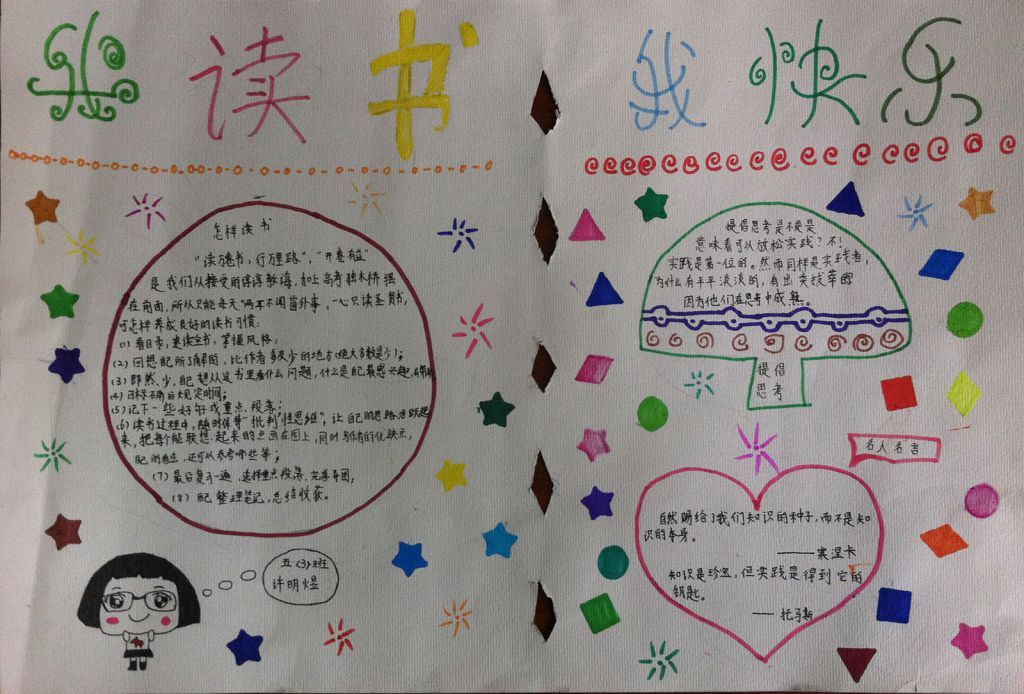 我读书
我快乐
怎样读书
"读万卷书，行万里路"，"开卷有益"
是我们从接受的谆谆教诲，如上高考独木桥摆
在前面，所以只能每天"两耳不闻窗外事，一心只读圣贤书，
可怎样养成良好的读书习惯：
(1) 看目录，来读全书，掌握风格；
(2) 回想配所了解的，比作者多及少的地方(绝大多数是少)；
(3) 即然、少，配想从这书里看什么问题，什么是配最感兴趣，
(4) 目标不确后大规定时间；
(5) 记下一些好好或重点、段落；
(6) 读书过程中，随时保替"批判"性思维"，让自己的思路活跃起
来，把每个能联想起来的点画在图上，同时写作者的优缺点，
配的看法，还可以参考哪些等；
(7) 最后复习一遍，选择重点段落、完善导图；
(8) 配整理笔记，总结收获。
五(3)班
许明煜
提倡思考是不是
意味着可以放松实践？不！
实践是第一位的。然而同样是实践者，
为什么有平平淡淡的，有出类拔萃的
因为他们在思考中成熟。
提倡
思考
名人名言
自然赐给了我们知识的种子，而不是知
识的本身。
——塞涅卡
知识是珍宝，但实践是得到它的
钥匙。
——托马斯